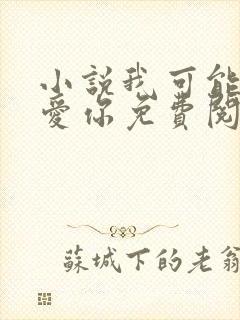 小說我可能
愛你免費閱
蘇城下的老翁